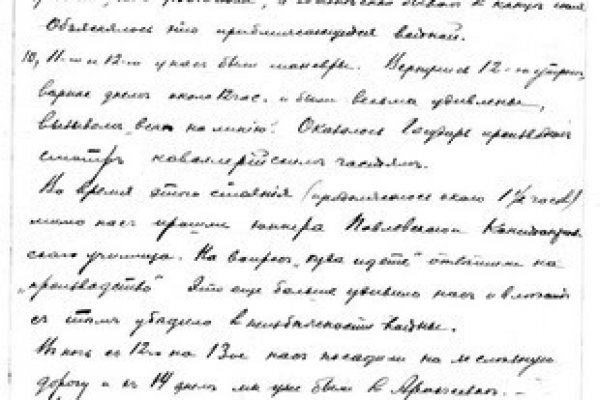 Объяснялось это приближающейся войной.
10, 11-го и 12-го у нас были маневры. Вернулись 12-го утром,
вернее днем около 12 час. и были весьма удивлены,
вызовом „всех на линию“. Оказалось Государь производит
смотр кавалерийским частям.
Во время этого стояния (продолжалось около 1½ часов)
мимо нас прошли юнкера Павловского
ского училища. На вопрос „куда идете“ ответили на
„производство“. Это еще больше удивило нас и
с тем убедило в неизбежности войны.
В ночь с 12го на 13ое нас посадили на железную
дорогу и 14 днем мы уже были в